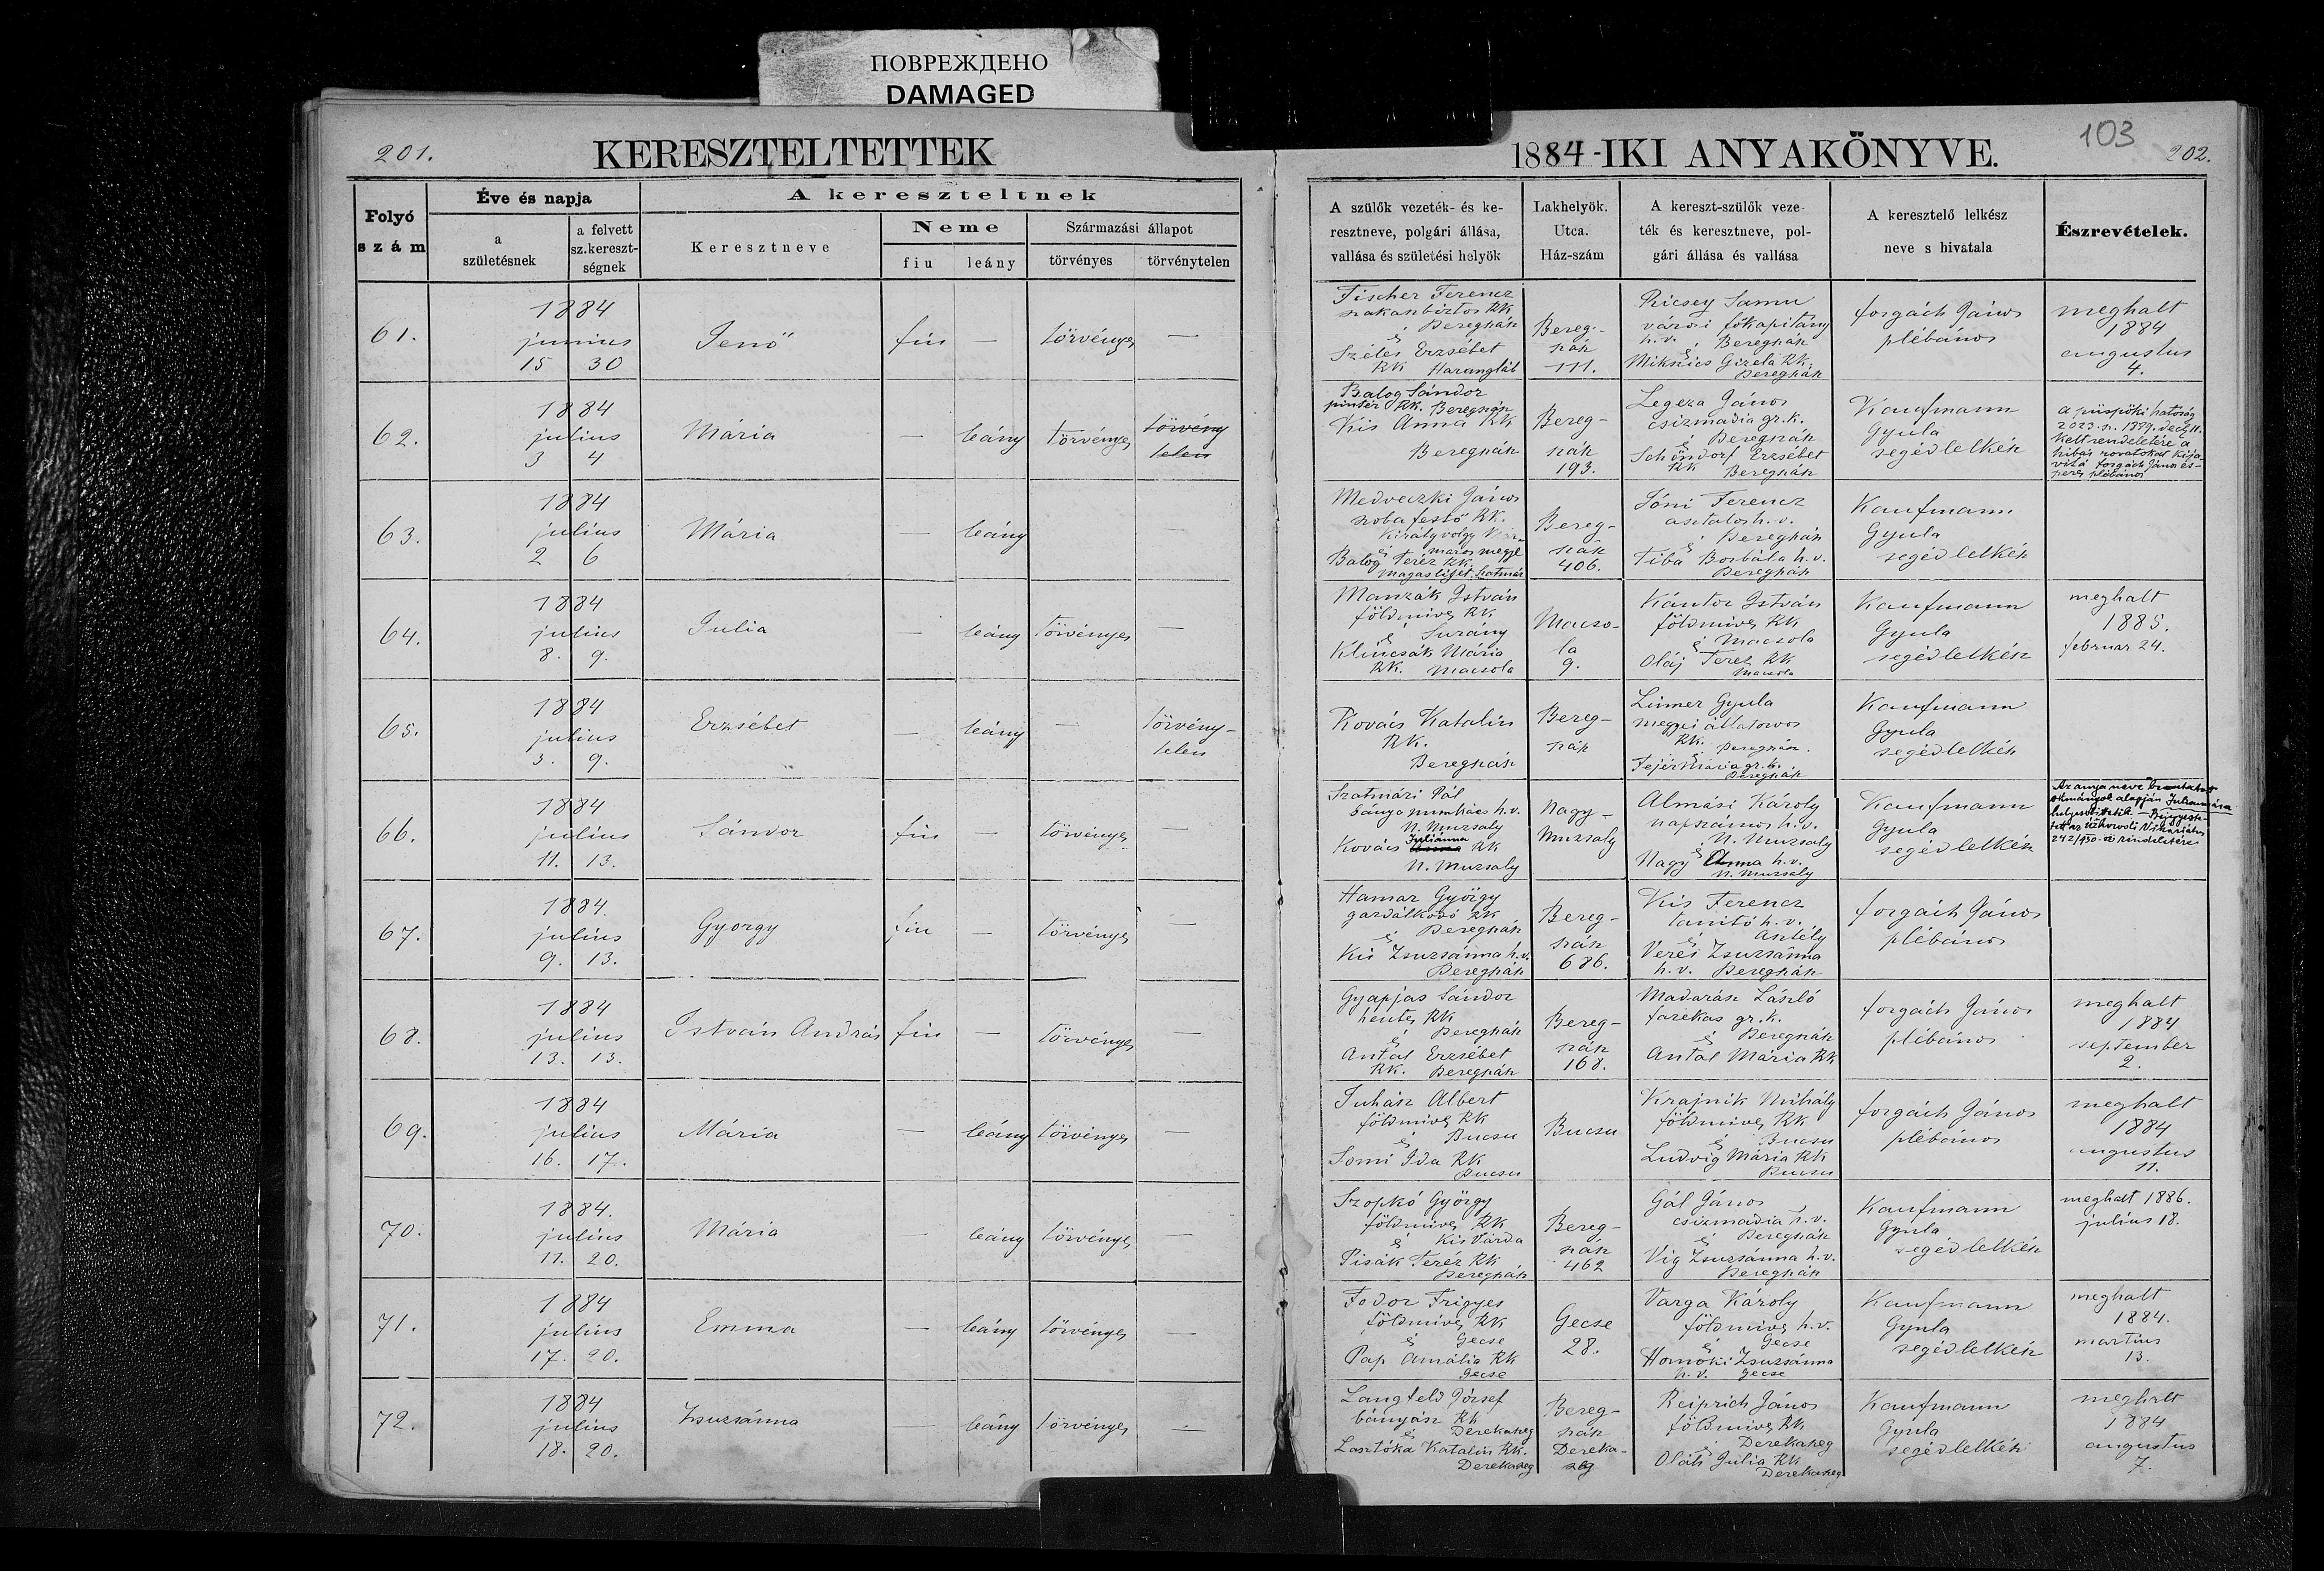 ПОВРЕЖДЕНО
DAMAGED
201.
KERESZTELTETTEK
1884-IKI ANYAKÖNYVE.
103
202.
Folyó
szám
Éve és napja
a
születésnek
a felvett
sz.kereszt-
ségnek
A kereszteltnek
Keresztneve
Neme
fiu
leány
Származási állapot
törvényes
törvénytelen
A szülők vezeték- és ke-
resztneve, polgári állása,
vallása és születési helyök
Lakhelyök.
Utca.
Ház-szám
A kereszt-szülők veze-
ték és keresztneve, pol-
gári állása és vallása
A keresztelő lelkész
neve s hivatala
Észrevételek.
61.
1884
junius
15 30
Jenő
fiu
—
törvényes
—
Fischer Ferencz
szakaszbiztos RK
Beregszász
és
Széles Erzsébet
RK Harangláb
Bereg-
szász
111.
Ricsey Samu
városi főkapitány
h.v. Beregszász
és
Miksics Gizela RK.
Beregszász
forgách János
plébános
meghalt
1884
augustus
4.
62.
1884
julius
3 4
Mária
—
leány
törvényes
törvény
telen
Balog Sándor
pintér RK. Beregszász
Kis Anna RK
Beregszász
Bereg-
szász
193.
Legeza János
csizmadia gr.k.
és Beregszász
Schöndorf Erzsébet
RK Beregszász
Kaufmann
Gyula
segédlelkész
a püspöki hatóság
2023. sz. 1889. decz. 11.
kelt rendeletére a
hibás rovatokat kija-
vitá forgách János es-
peres plébános
63.
1884
julius
2 6
Mária
—
leány
—
Medveczki János
szobafestő RK.
Királyvölgy
és maros megye
Balog Teréz RK.
Magasliget Szatmár
Bereg-
szász
406.
Sóni Ferencz
asztalos h.v.
és Beregszász
Tiba Borbála h.v.
Beregszász
Kaufmann
Gyula
segédlelkész
64.
1884
julius
8. 9.
Julia
—
leány
törvényes
—
Manzák István
földmives RK
és Surány
Klincsák Mária
RK. Macsola
Macso-
la
9.
Kántor István
földmives RK
és Macsola
Oláj Teréz RK
Macsola
Kaufmann
Gyula
segédlelkész
meghalt
1885.
februar 24.
65.
1884
julius
3. 9.
Erzsébet
—
leány
—
törvény-
telen
Kovács Katalin
RK.
Beregszász
Bereg-
szász
Linner Gyula
megyei állatorvos
RK. Beregszász.
és
Fejér Mária gr.k.
Beregszász
Kaufmann
Gyula
segédlelkész
66.
1884
julius
11. 13.
Sándor
fiu
—
törvényes
—
Szatmári Pál
bánya munkás h.v.
N. Muzsaly
Kovács Juliánna RK
N. Muzsaly
Nagy-
Muzsaly
Almási Károly
napszámos h.v.
és N. Muzsaly
Nagy Anna h.v.
N. Muzsaly
Kaufmann
Gyula
segédlelkész
Az anya neve bemutatott
okmányok alapján Juliannára
helyesbittetik. Bejegyez-
tett az Užhorodi Vikáriátus
242/930. sz. rendeletére
67.
1884.
julius
9. 13.
Gyorgy
fiu
—
törvényes
—
Hamar György
gazdálkodó RK
és Beregszász
Kis Zsuzsánna h.v.
Beregszász
Bereg-
szász
686.
Kis Ferencz
tanitó h.v.
és Asztély
Veres Zsuzsánna
h.v. Beregszász
forgách János
plébános
68.
1884
julius
13. 13.
István András
fiu
—
törvényes
—
Gyapjas Sándor
hentes RK
és Beregszász
Antal Erzsébet
RK. Beregszász
Bereg-
szász
168.
Madarász László
fazekas gr.k.
és Beregszász
Antal Mária RK
forgách János
plébános
meghalt
1884
september
2.
69.
1884
julius
16. 17.
Mária
—
leány
törvényes
—
Juhász Albert
földmives RK
és Bucsu
Somi Ida RK
Bucsu
Bucsu
Krajnik Mihály
földmives RK
és Bucsu
Ludvig Mária RK
Bucsu
forgách János
plébános
meghalt
1884
augustus
11.
70.
1884.
julius
11. 20.
Mária
—
leány
törvényes
—
Szopkó György
földmives RK
és Kis Várda
Pisák Teréz RK
Beregszász
Bereg-
szász
462
Gál János
csizmadia h.v.
és Beregszász
Vig Zsuzsánna h.v.
Beregszász
Kaufmann
Gyula
segédlelkész
meghalt 1886.
julius 18.
71.
1884
julius
17. 20.
Emma
—
leány
törvényes
—
Fodor Frigyes
földmives RK
és Gecse
Pap Amália RK
Gecse
Gecse
28.
Varga Károly
földmives h.v.
és Gecse
Homoki Zsuzsánna
h.v. Gecse
Kaufmann
Gyula
segédlelkész
meghalt
1884.
martius
13.
72.
1884
julius
18. 20.
Zsuzsánna
—
leány
törvényes
—
Langfeld József
bányász RK
és Derekaszeg
Lasztóka Katalin RK.
Derekaszeg
Bereg-
szász
Dereka-
szeg
Reiprich János
földmives RK
és Derekaszeg
Oláh Julia RK
Derekaszeg
Kaufmann
Gyula
segédlelkész
meghalt
1884
augustus
7.